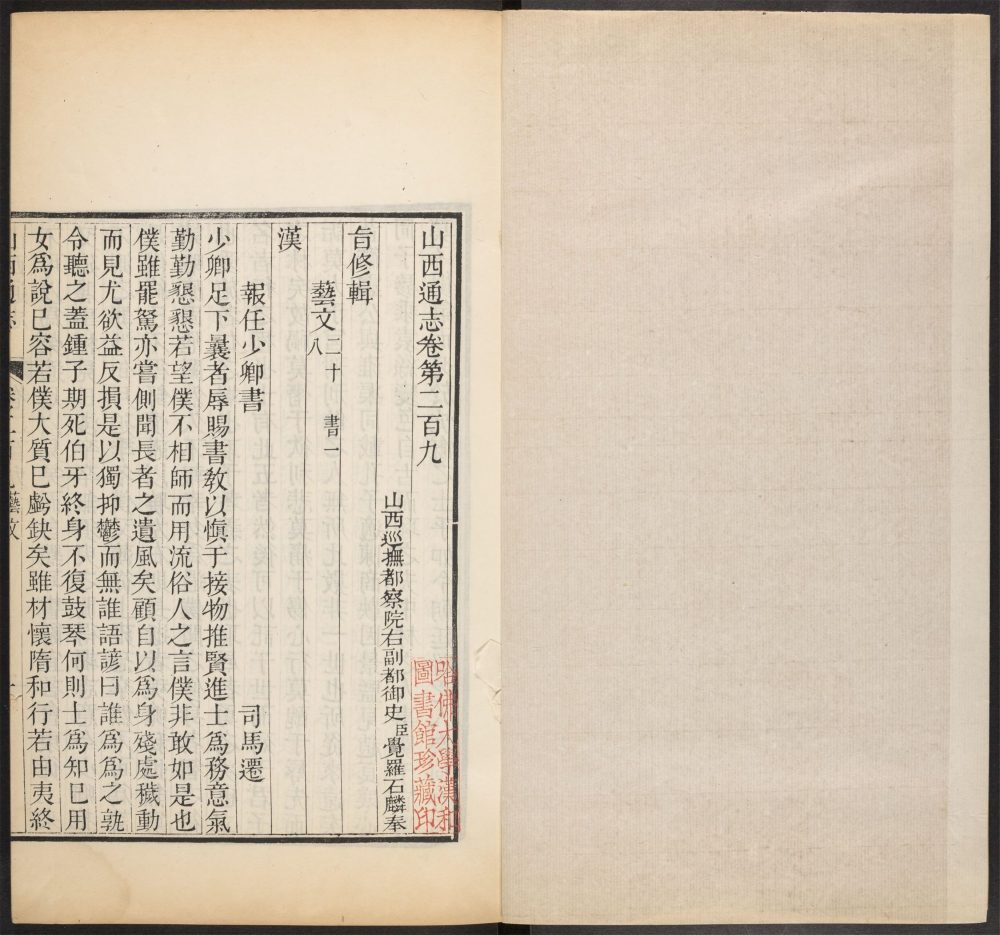 山西通志卷第二百九
山西巡撫都察院右副都御史臣覺羅石麟奉
旨修輯
藝文二十八 書一
漢
報任少卿書 司馬遷
少卿足下曩者辱賜書教以愼于接物推賢進士爲務意氣
勤勤懇懇若望僕不相師而用流俗人之言僕非敢如是也
僕雖罷駑亦嘗側聞長者之遺風矣顧自以爲身殘處穢動
而見尤欲益反損是以獨抑鬱而無誰語諺曰誰爲爲之孰
令聽之蓋鍾子期死伯牙終身不復鼓琴何則士爲知已用
女爲說已容若僕大質已虧缺矣雖材懷隋和行若由夷終
山西通志 藝文
哈佛大學漢和
圖書館珍藏印